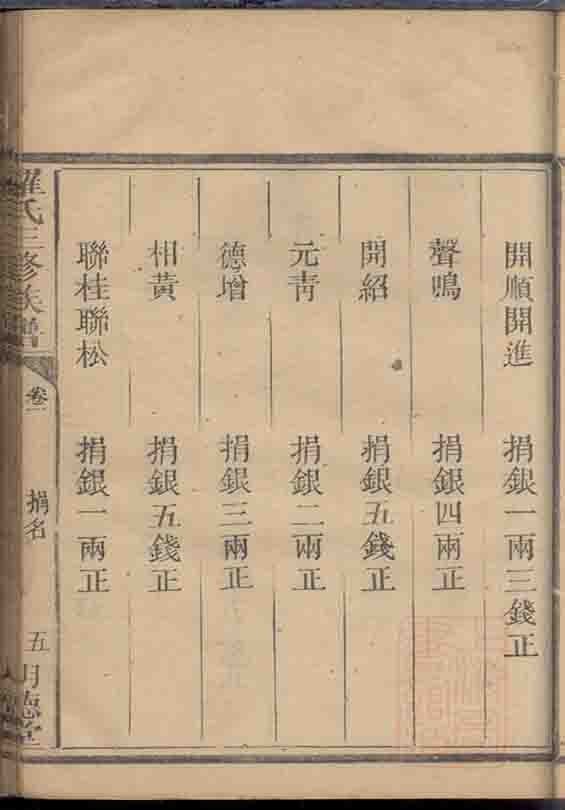 開順開進 捐銀一兩三錢正
聲鳴 捐銀四兩正
開紹 捐銀五錢正
元青 捐銀二兩正
德增 捐銀三兩正
相黃 捐銀五錢正
聯桂聯松 捐銀一兩正
羅氏三修族譜 卷 捐名 五 明德堂